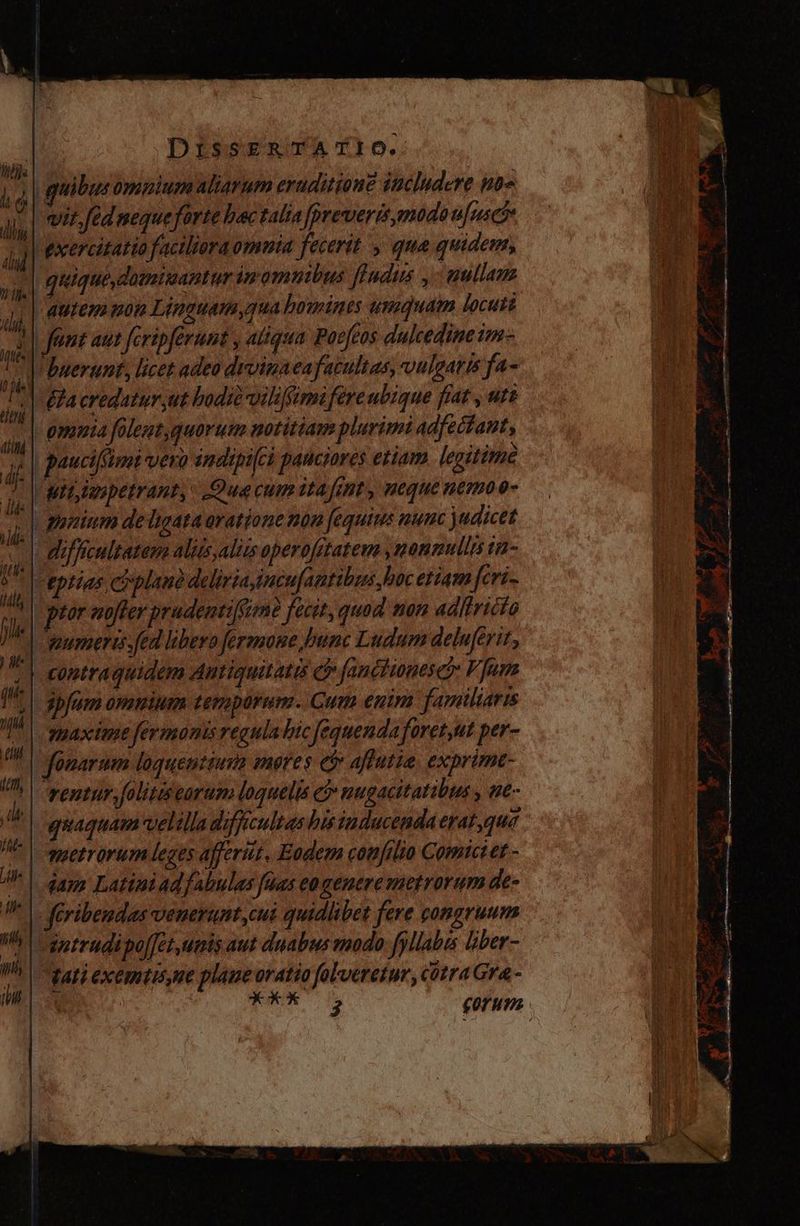 DISSERTATIO.
quibus omnium aliarum eruditionē includere no-
vit, sed neque forte hæc talia spreveris, modo usus &
exercitatio faciliora omnia fecerit, quæ quidem,
quique, dominantur in omnibus studiis, nullam
autem non Linguam, qua homines umquam locuti
sunt aut scripserunt, aliqua Poeseos dulcedine im-
buerunt, licet adeo divina ea facultas, vulgaris fa-
cta credatur, ut hodiè vilissimi fere ubique fiat, uti
omnia solent, quorum notitiam plurimi adfectant,
paucissimi vero indipisci pauciores etiam legitimè
uti, impetrant, Quæ cum ita sint, neque nemo o-
mnium de ligata oratione non sequius nunc judicet
difficultatem aliis, aliis operositatem, nonnullis in-
eptias & planè deliria, incusantibus, hoc etiam scri-
ptor noster prudentissimè fecit, quod non adstricto
numeris, sed libero sermone, hunc Ludum deluserit,
contra quidem Antiquitatis & sanctiones & Vsum
ipsum omnium temporum. Cum enim familiaris
maxime sermonis regula hic sequenda foret, ut per-
sonarum loquentium mores & astutiæ exprime-
rentur, solitis earum loquelis & nugacitatibus, ne-
quaquam vel illa difficultas his inducenda erat, quā
metrorum leges afferūt. Eodem consilio Comici et-
iam Latini ad fabulas suas eo genere metrorum de-
scribendas venerunt, cui quidlibet fere congruum
intrudi posset, unis aut duabus modo syllabis liber-
tati exemtis, ne plane oratio solveretur, cōtra Græ-
*** 3 corum